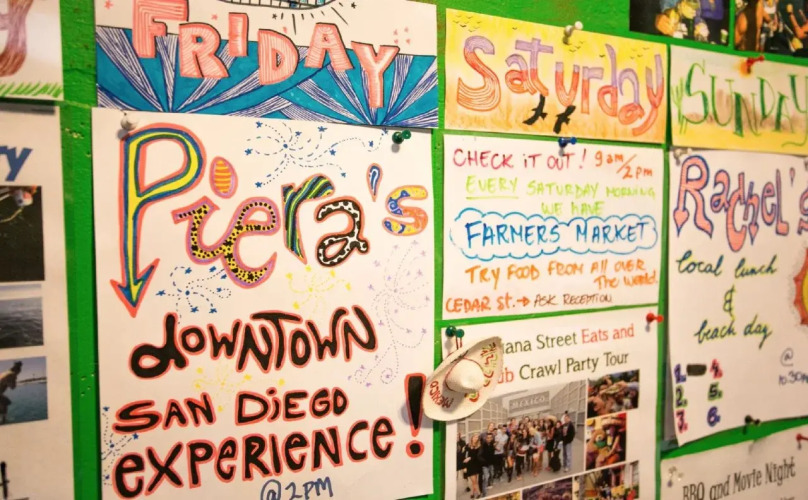 FRIDAY
Piera's
downtown
SAN DiEGO
EXPERiENCE!
@ 2PM
Saturday
CHECK iT OUT! 9am/2pm
EVERY SATURDAY MORNING
WE HAVE
FARMERS MARKET
TRY FOOD FROM All OVER
The World
CEDAR St. → ASK RECEPTION
ana Street Eats and
ub Crawl Party Tour
MEXICO
MEXICO
SUNDAY
Rachel's
local lunch
&
beach day
@
10:30am
1. 4.
2. 5.
3. 6.
BBQ and Movie Night
ry